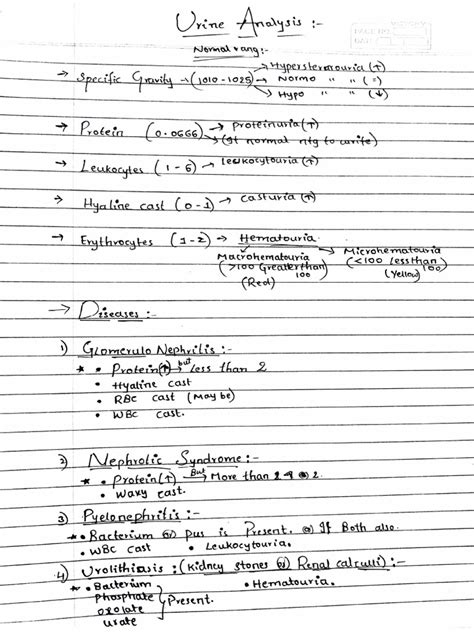 Urine Analysis :-
Normal rang:-
→ Specific Gravity → (1010-1025) → Hypersternouria (↑)
→ Normo " " (=)
→ Hypo " " (↓)
→ Protein (0.0666) → proteinuria (↑)
→ (If normal ntg to write)
→ Leukocytes (1-6) → leukocytouria (↑)
→ Hyaline cast (0-1) → casturia (↑)
→ Erythrocytes (1-2) → Hematouria
Macrohematouria
(>100 Greater than 100)
(Red)
Microhematouria
(<100 less than 100)
(Yellow)
→ Diseases :-
1) Glomerulo Nephritis :-
★ • Protein(↑) but → Less than 2
• Hyaline cast
• RBC cast (May be)
• WBC cast.
2) Nephrotic Syndrome :-
★ • Protein(↑) But → More than 2
• Waxy cast.
3) Pyelonephritis :-
★ • Bacterium or pus is Present. or If Both also.
• WBC cast • Leukocytouria.
4) Urolithiasis : (Kidney stones or Renal calculi) :-
★ • Bacterium • Hematouria.
Phosphate } Present.
oxolate
urate